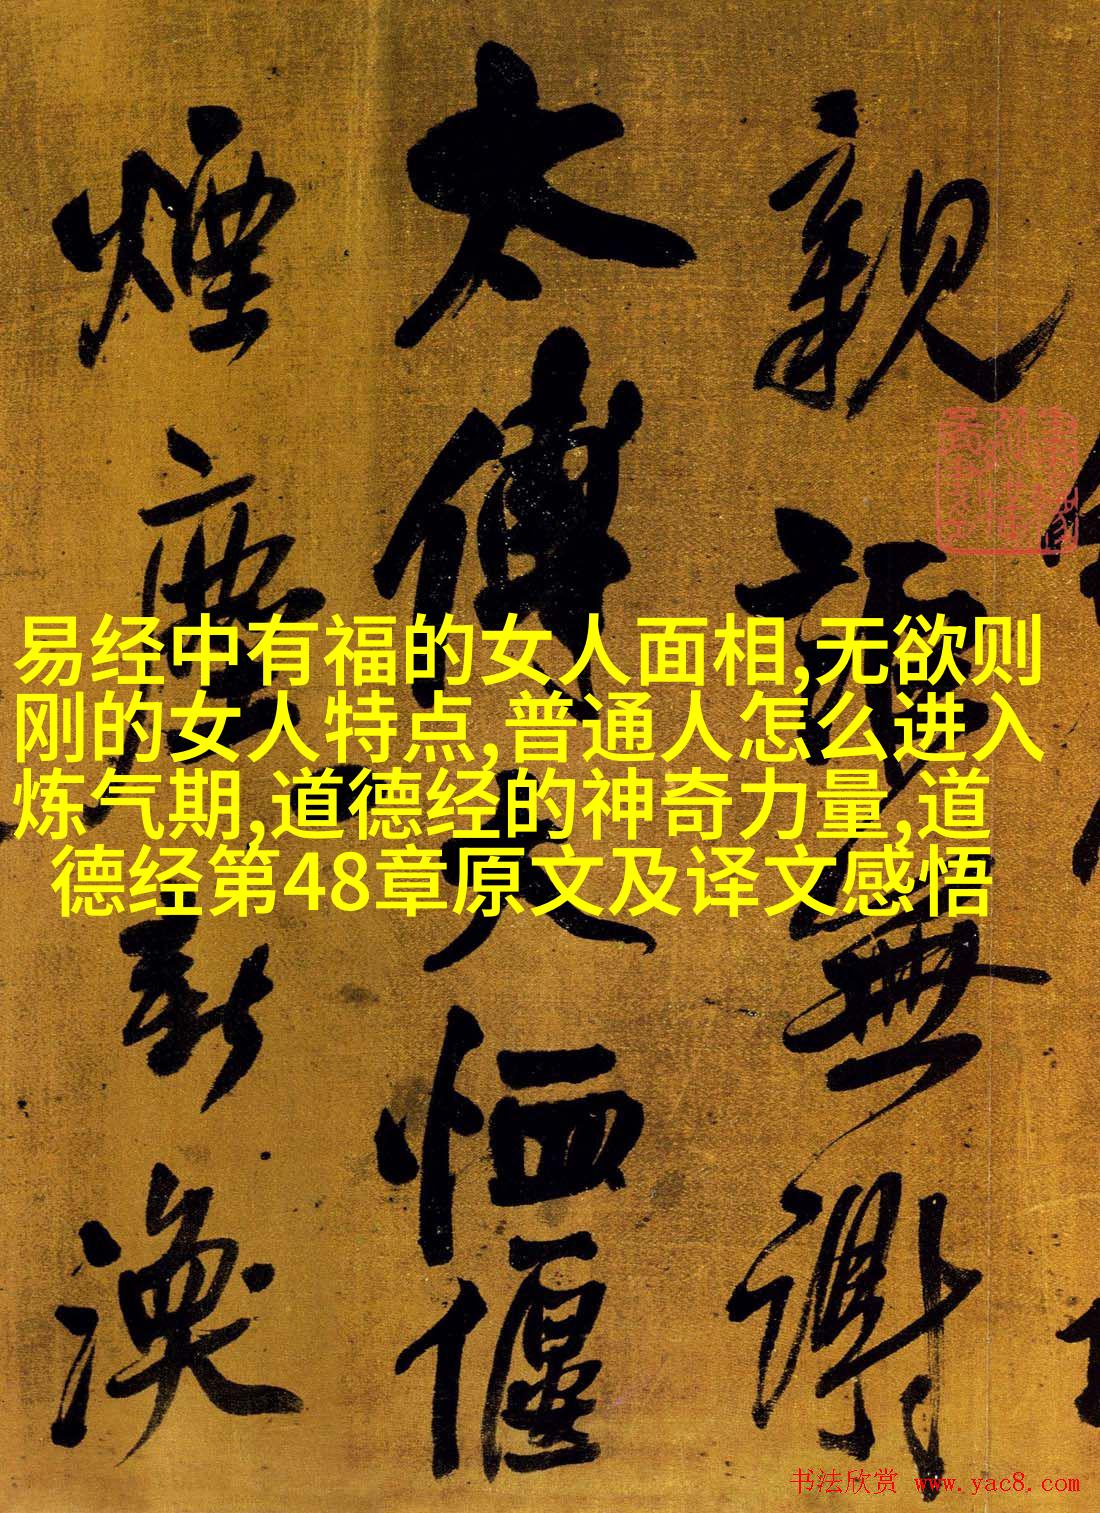 易经中有福的女人面相,无欲则
刚的女人特点,普通人怎么进入
炼气期,道德经的神奇力量,道
德经第48章原文及译文感悟
親無謝
太傅大恤偃
煙塵新渙
书法欣赏 www.yac8.com